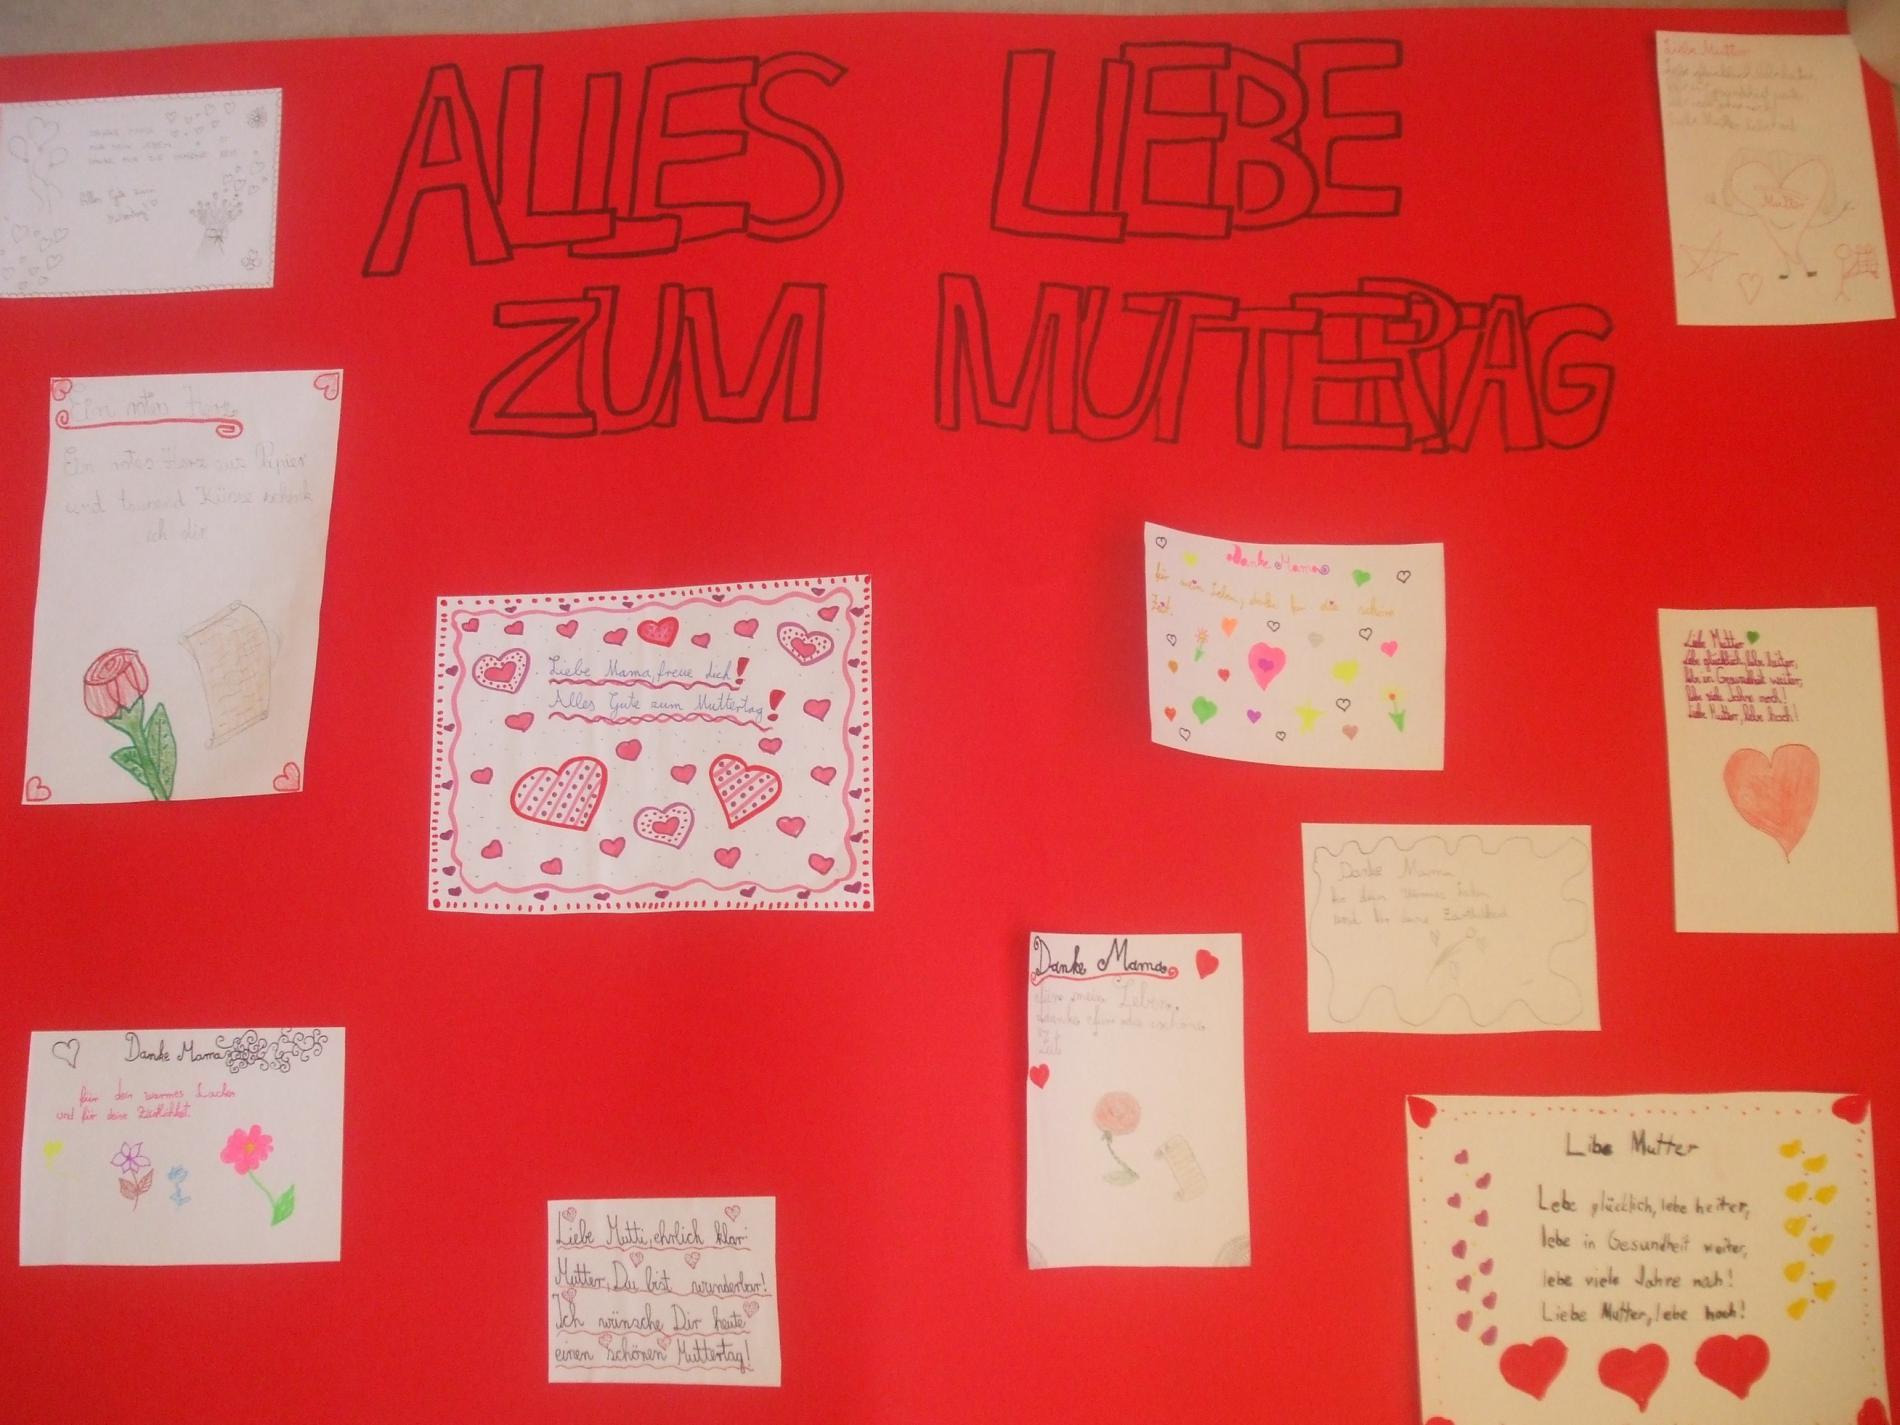 ALLES LIEBE
ZUM MUTTERTAG
DANKE MAMA
FÜR MEIN LEBEN
DANKE FÜR DIE SCHÖNE ZEIT
Alles Gute zum
Muttertag
Liebe Mutter
Mutter
Ein rotes Herz
Ein rotes Herz aus Papier
und tausend Küsse schenk
ich dir
Liebe Mama, freue dich!
Alles Gute zum Muttertag!
Danke Mama
für mein Leben, danke für die schöne
Zeit.
Liebe Mutter
Lebe glücklich, lebe heiter,
lebe in Gesundheit weiter,
lebe viele Jahre noch!
Liebe Mutter, lebe hoch!
Danke Mama
für dein warmes
und für deine Zärtlichkeit
Danke Mama
für mein Leben,
danke für die schöne
Zeit
Danke Mama
für dein warmes Lachen
und für deine Zärtlichkeit.
Liebe Mutti, ehrlich klar
Mutter, Du bist wunderbar!
Ich wünsche Dir heute
einen schönen Muttertag!
Libe Mutter
Lebe glücklich, lebe heiter,
lebe in Gesundheit weiter,
lebe viele Jahre noch!
Liebe Mutter, lebe hoch!